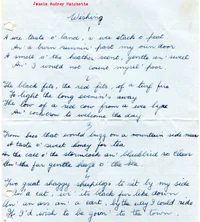 Jessie Audrey Hatchette
Wishing
A wee taste o' land, a wee stack o' peat
An' a burn runnin' past my own door
A smell o' the heather scent, gentle an' sweet
An' I would not count myself poor.
The black fits, the red fits, of a turf fire
To light the long evenin's away
The low of a red cow from a wee byre
An' cockcrow to welcome the day
From bees that would buzz on a mountain side near
A taste o' sweet honey for tea
the far gentle hag o' the sea
Two great shaggy sheepdogs to sit by my side
An' a cat, red its black fur like down
An' an ass an' a cart, by the way I could ride
If I wish'd to be goin' to the town